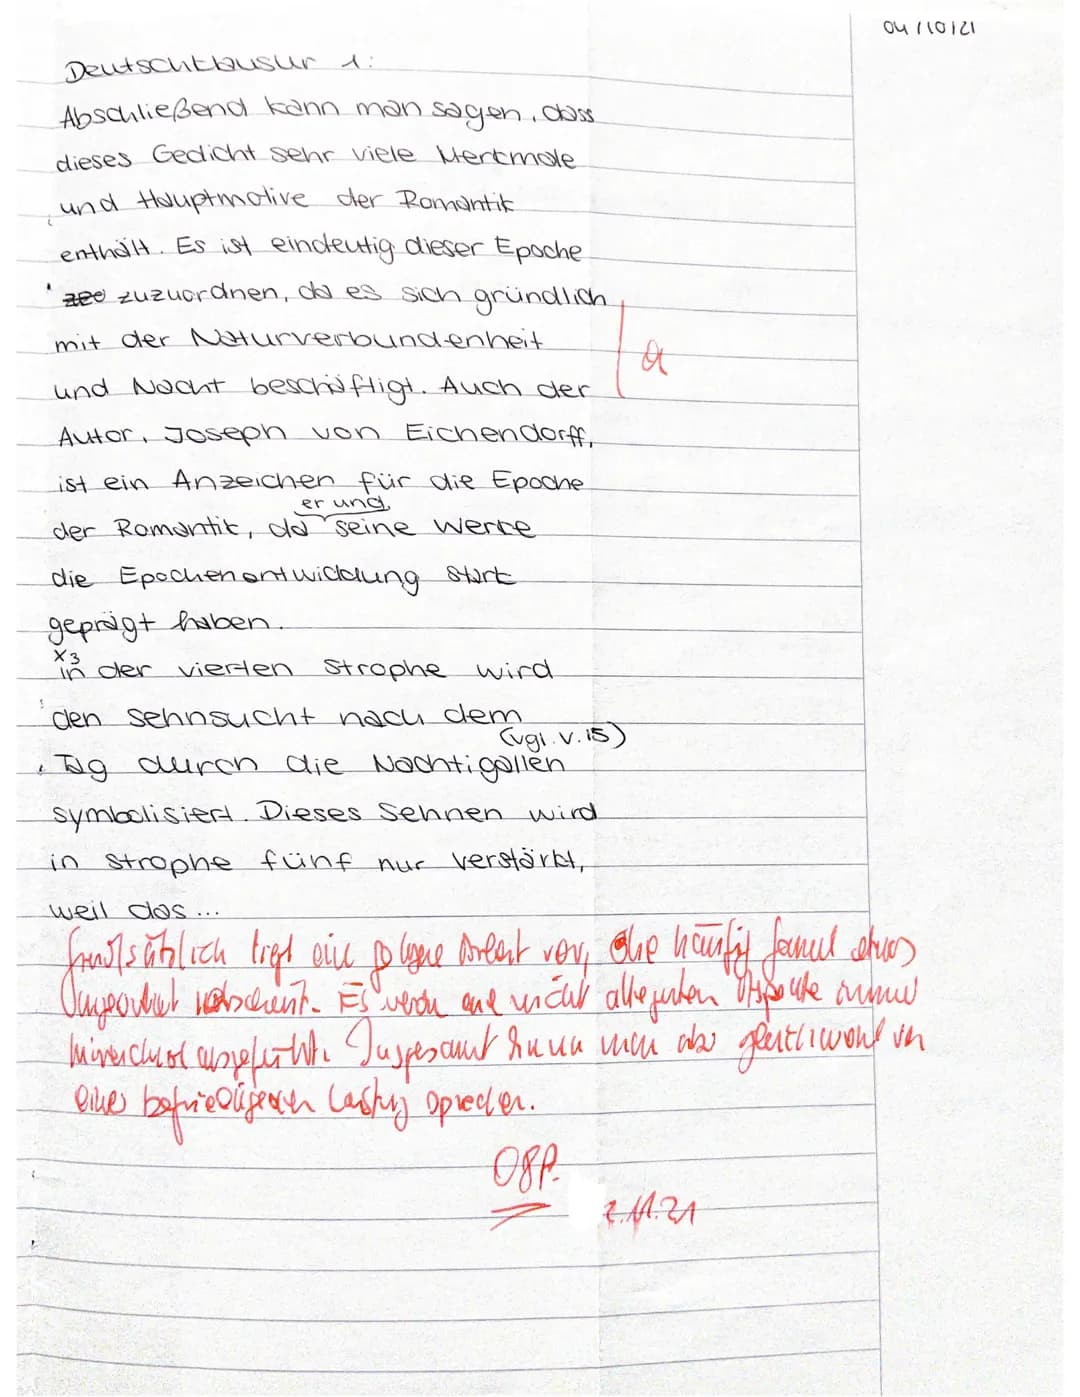 04/10/21
Deutschklausur 1:
Abschließend kann man sagen, dass
dieses Gedicht sehr viele Merkmale
und Hauptmotive der Romantik
enthält. Es ist eindeutig dieser Epoche
zuzuordnen, da es sich gründlich
mit der Naturverbundenheit
und Nacht beschäftigt. Auch der
Autor, Joseph von Eichendorff,
ist ein Anzeichen für die Epoche
er und
der Romantik, da seine Werke
die Epochenentwicklung stark
geprägt haben.
x3
in der vierten Strophe wird
den Sehnsucht nach dem
(vgl. V. 15)
Tag durch die Nachtigallen
symbolisiert. Dieses Sehnen wird
in Strophe fünf nur verstärkt,
weil das...
liegt eine Arbeit vor, die häufig etwas
Es werden nicht alle Aspekte immer
Insgesamt kann man aber gleichwohl von
einer befriedigenden Leistung sprechen.
08P.
2.11.21